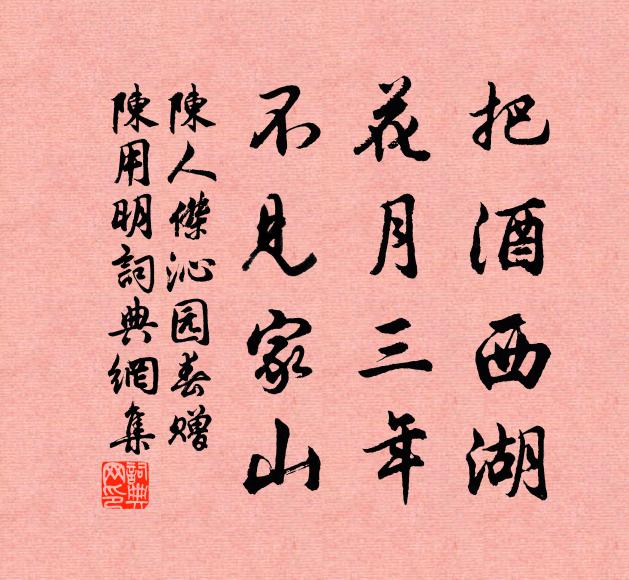 把酒西湖
花月三年
不見家山
陳人傑沁园春赠
陳用明詞典網集
詞典网印